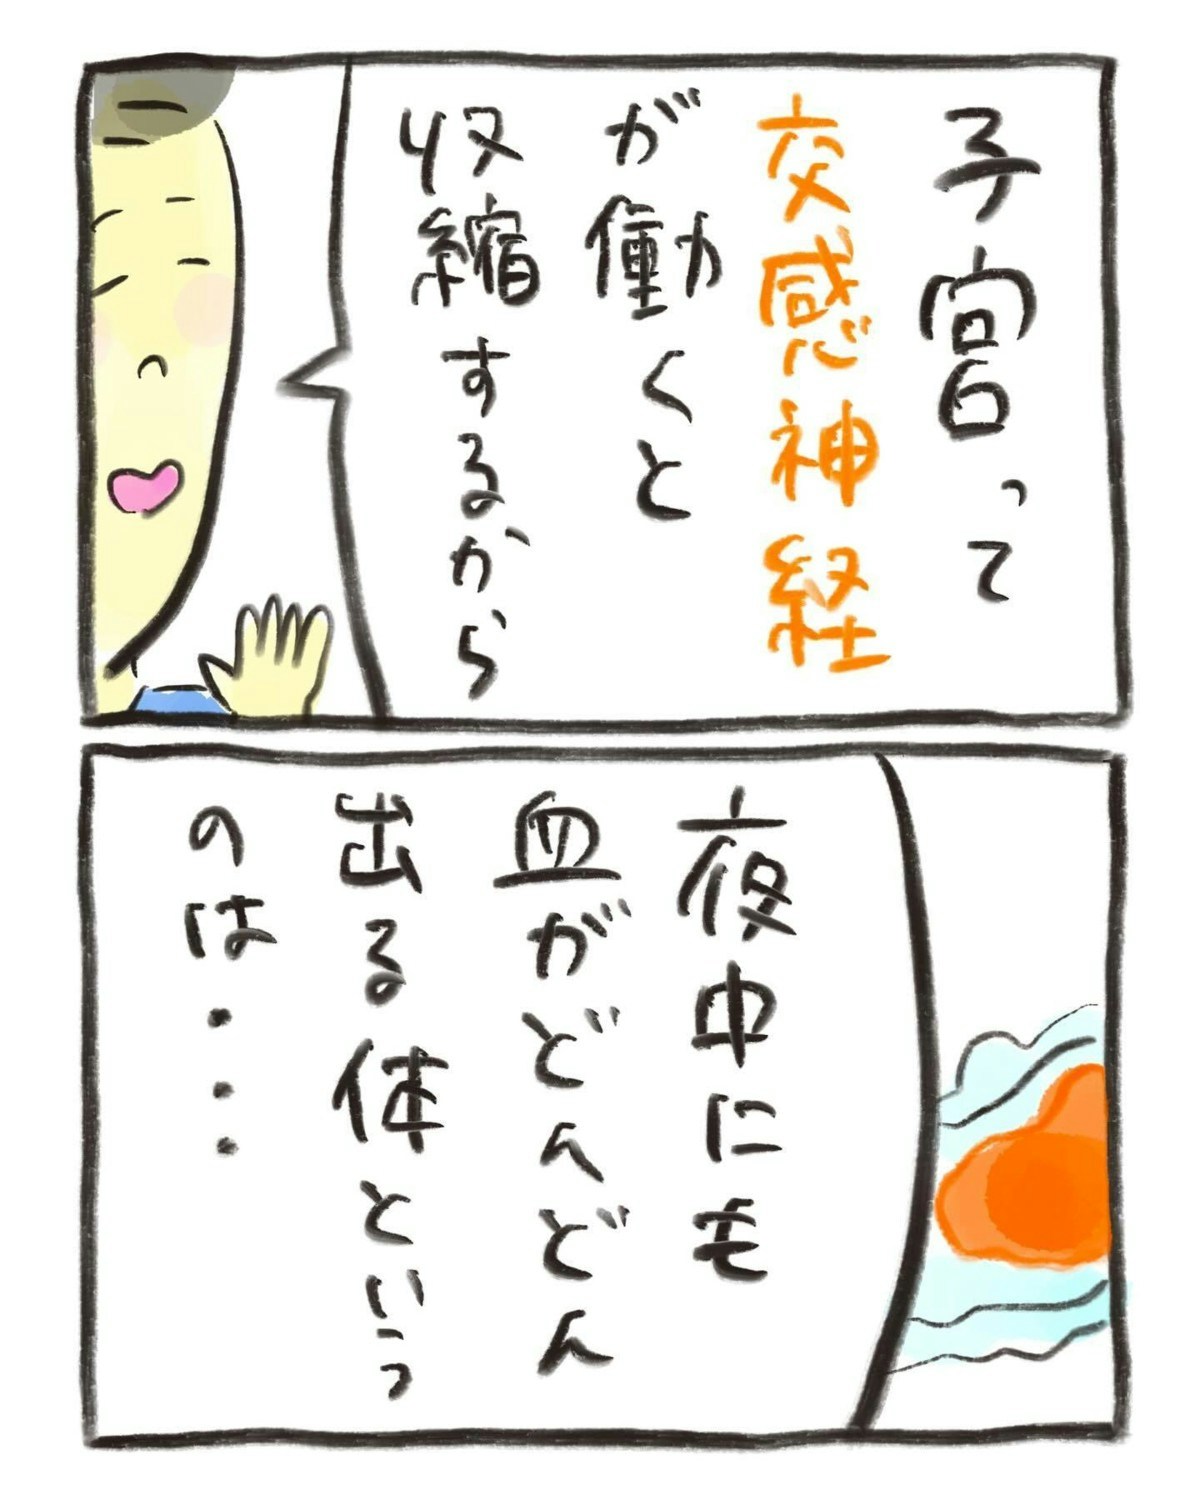 子宮って
交感神経
が働くと
収縮するから
夜中にも
血がどんどん
出る体という
のは・・・